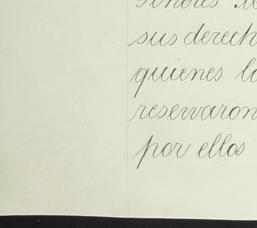 sus derech
quienes lo
reservaron
por ellos